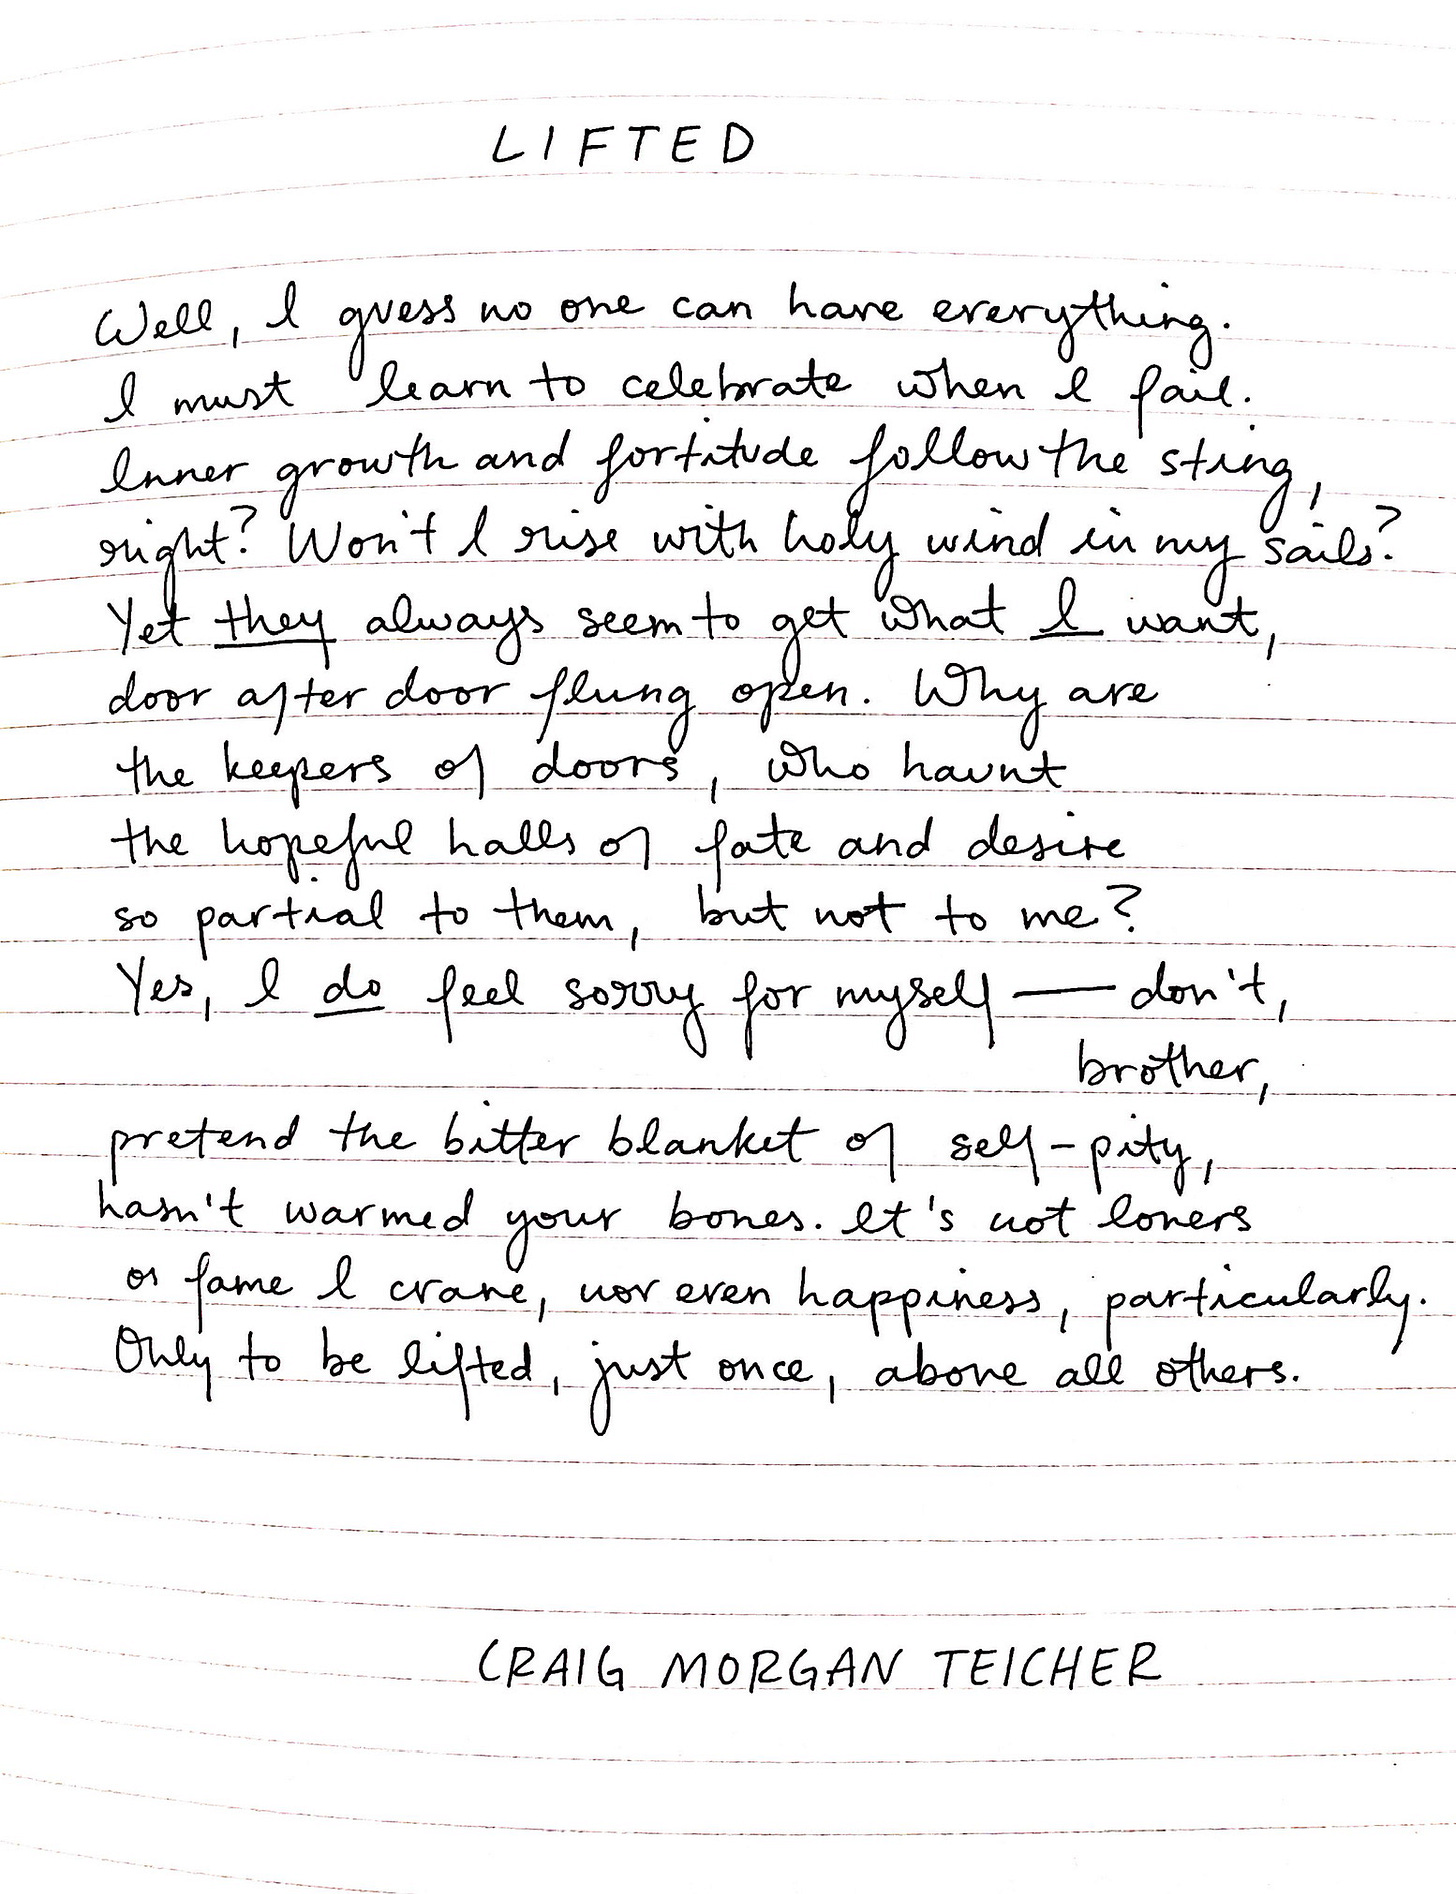 LIFTED
Well, I guess no one can have everything.
I must learn to celebrate when I fail.
Inner growth and fortitude follow the sting,
right? Won't I rise with holy wind in my sails?
Yet they always seem to get what I want,
door after door flung open. Why are
the keepers of doors, who haunt
the hopeful halls of fate and desire
so partial to them, but not to me?
Yes, I do feel sorry for myself — don't,
brother,
pretend the bitter blanket of self-pity,
hasn't warmed your bones. It's not lovers
or fame I crave, nor even happiness, particularly.
Only to be lifted, just once, above all others.
CRAIG MORGAN TEICHER